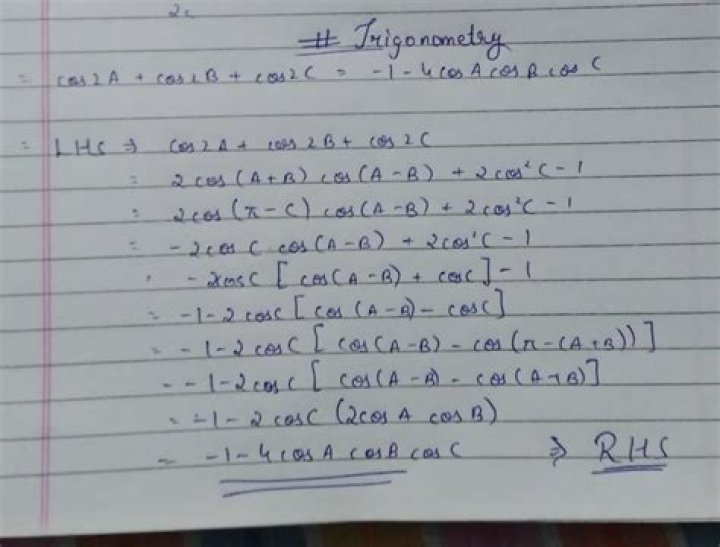 2c
# Trigonometry
= cos2A + cos2B + cos2C = -1-4cosAcosBcosC
= LHS ⇒ cos2A + cos2B + cos2C
= 2cos(A+B) cos(A-B) + 2cos²C-1
= 2cos(π-C) cos(A-B) + 2cos²C-1
= -2cosC.cos(A-B) + 2cos²C-1
= -2cosC [cos(A-B) + cosC]-1
= -1-2cosC[cos(A-B) - cosC]
= -1-2cosC[cos(A-B) - cos(π-(A+B))]
= -1-2cosC[cos(A-B) - cos(A+B)]
= -1-2cosC(2cosA cosB)
= -1-4cosAcosBcosC ⇒ RHS